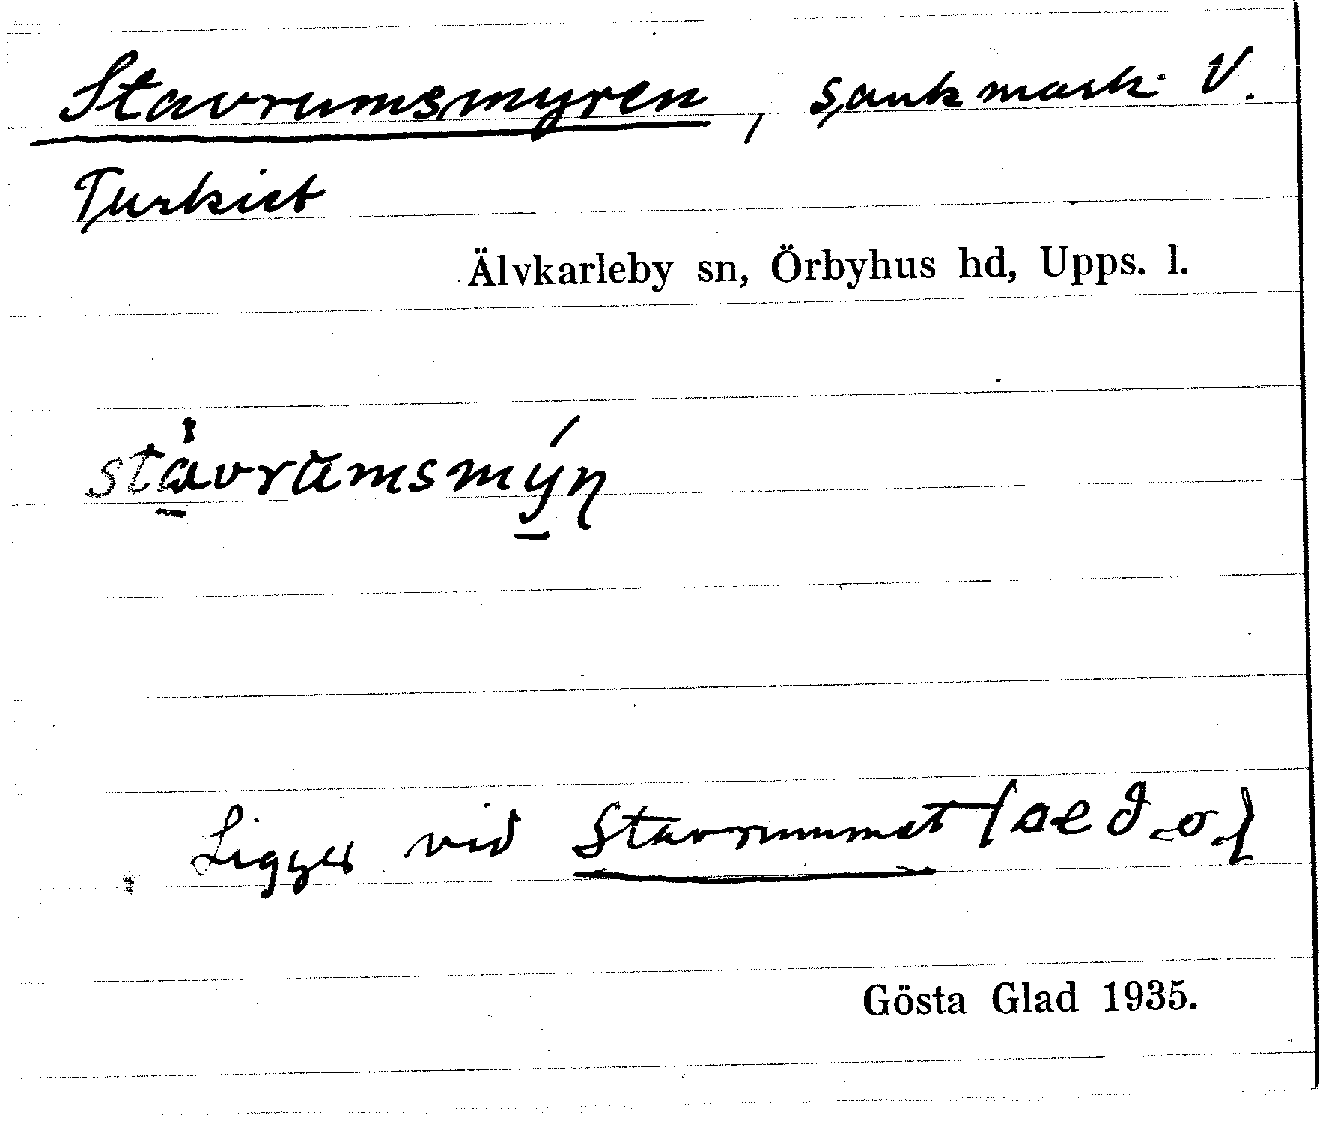 Stavrumsmyren, sankmark V.
Turkiet
Älvkarleby sn, Örbyhus hd, Upps. l.
stàvrumsmýn
Ligger vid Stavrummet (se d. o.)
Gösta Glad 1935.